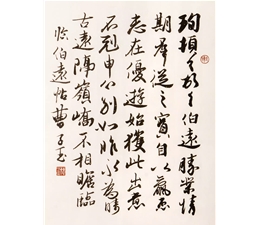 珣頓首頓首伯遠勝業情
期羣從之寶自以羸患
志在優遊始獲此出意
不剋申分別如昨永為疇
古遠隔嶺嶠不相瞻臨
臨伯遠帖曹